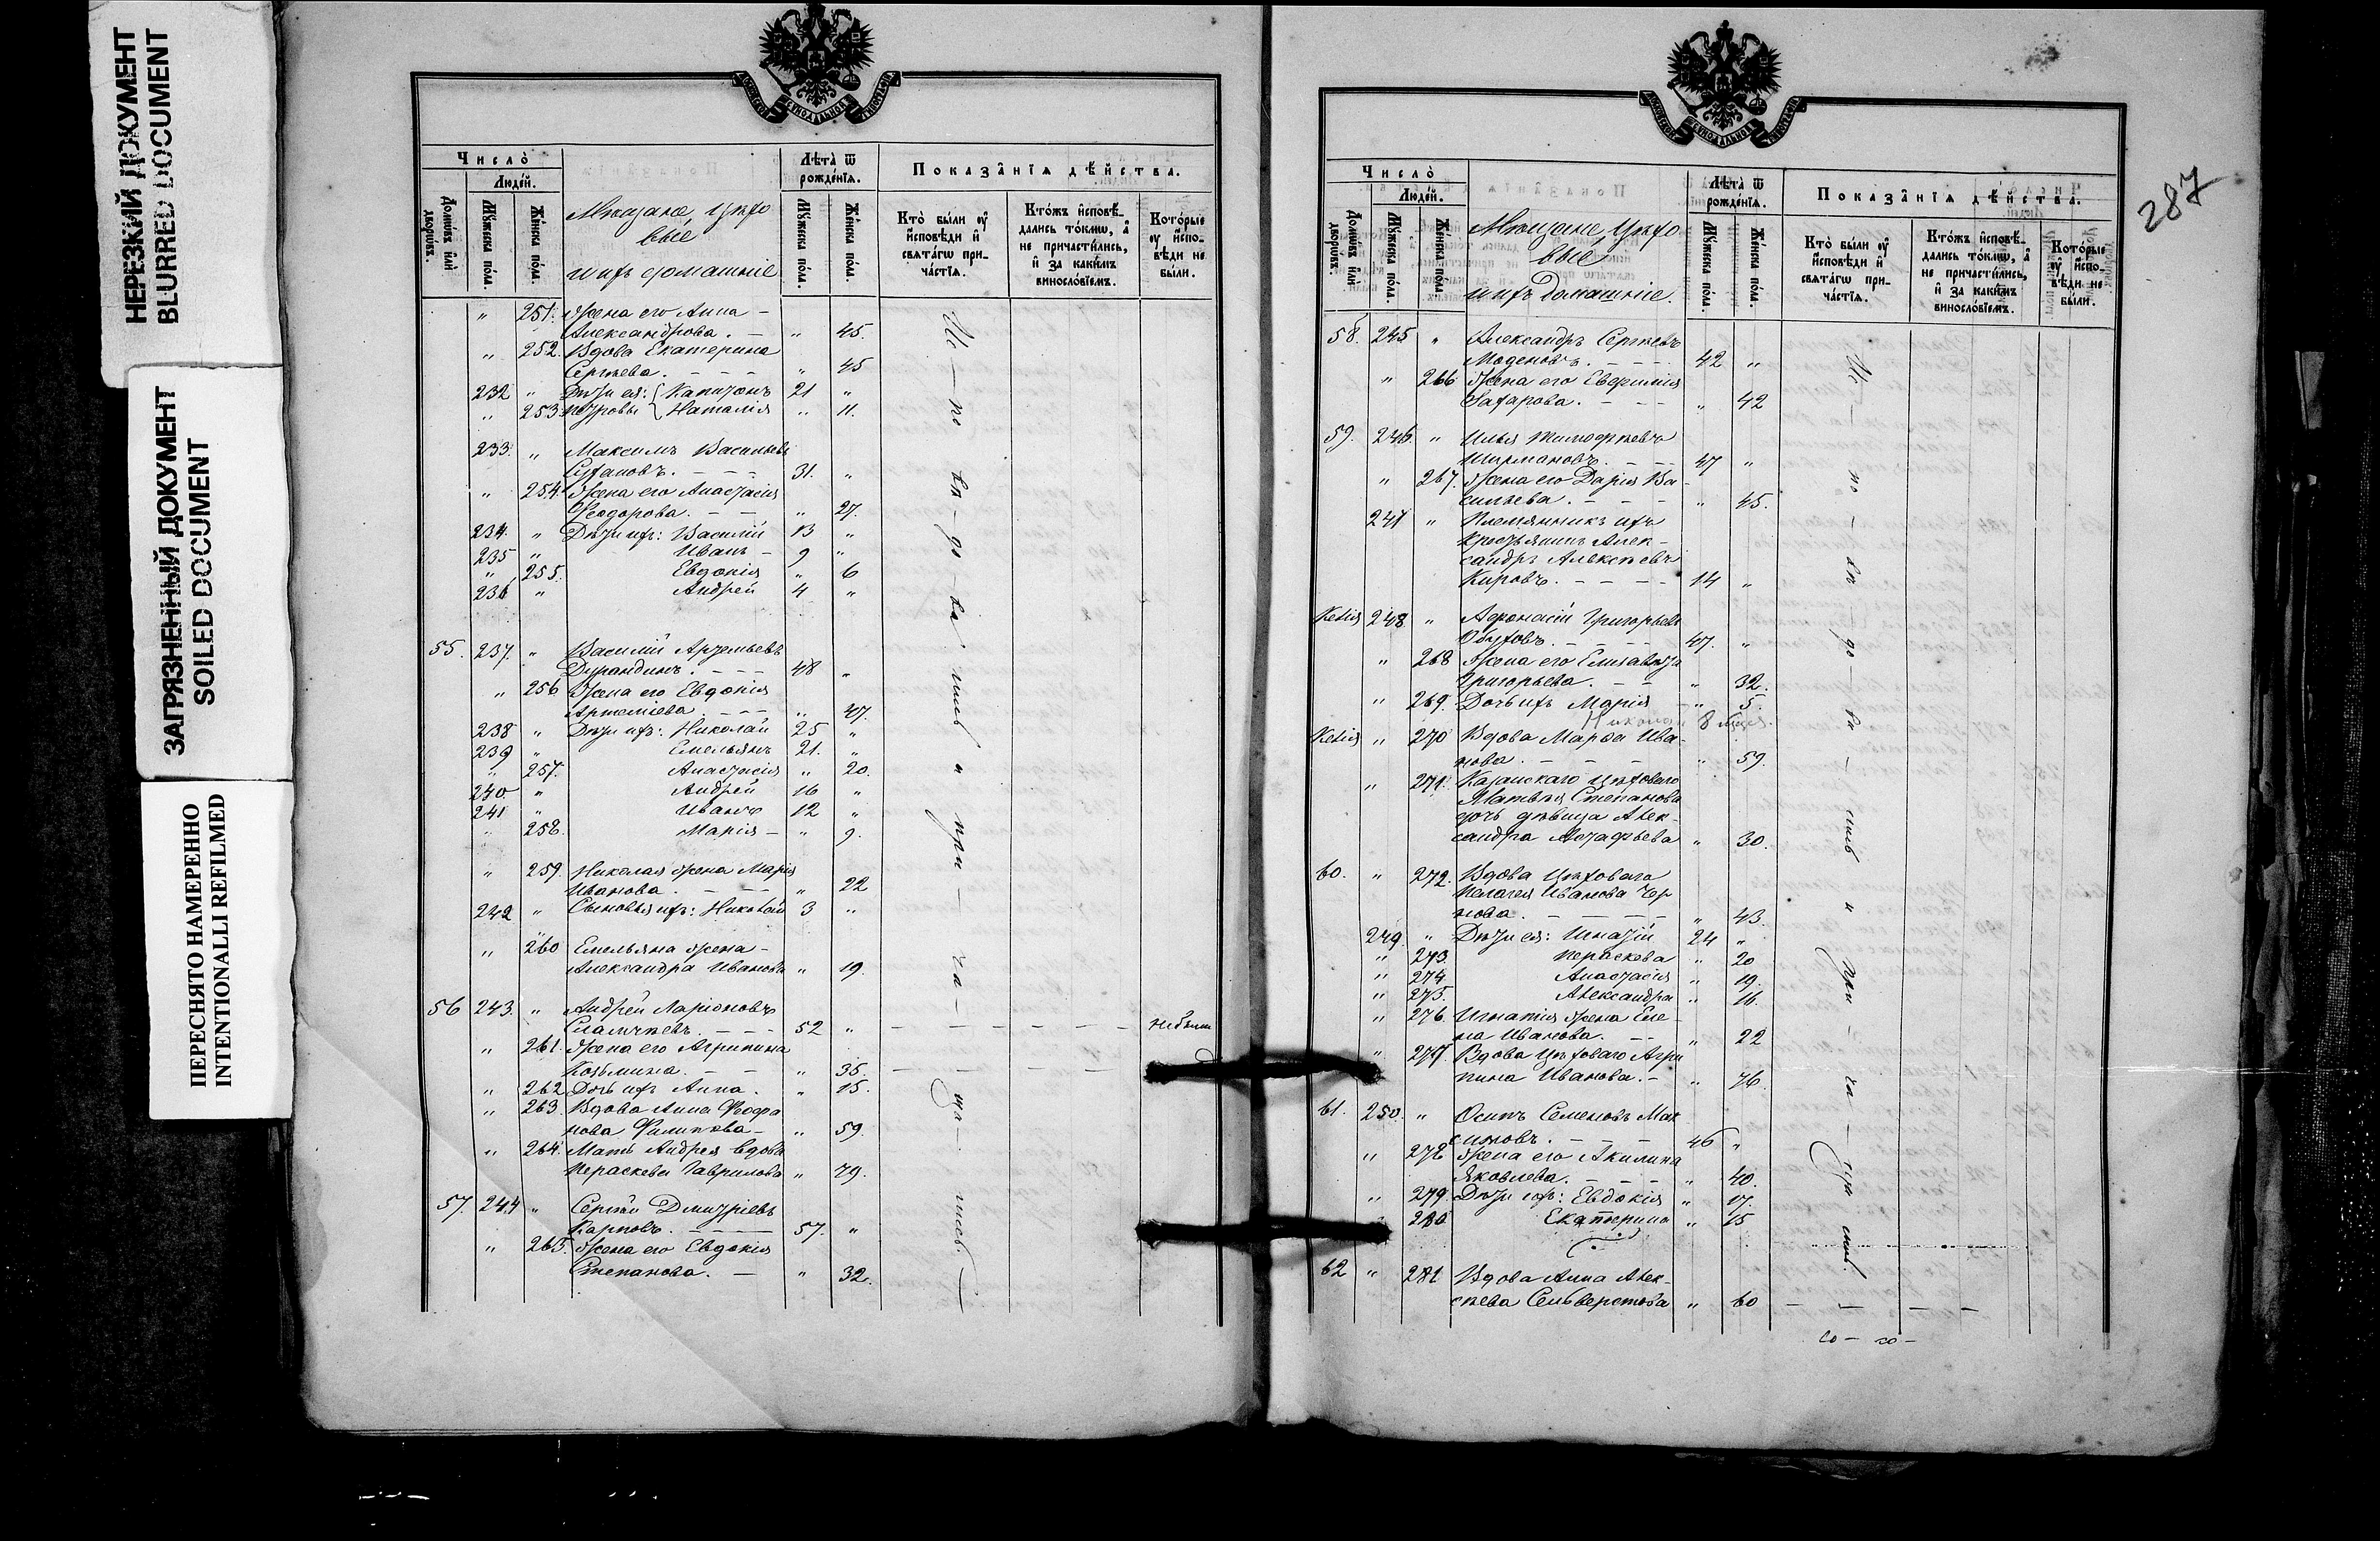 НЕРЕЗКИЙ ДОКУМЕНТ
BLURRED DOCUMENT
ЗАГРЯЗНЕННЫЙ ДОКУМЕНТ
SOILED DOCUMENT
ПЕРЕСНЯТО НАМЕРЕННО
INTENTIONALLI REFILMED
Число̀
Людéй.
Домѡ́въ и҆лѝ дворѡ́въ.
Мꙋ́жеска по́ла.
Же́нска по́ла.
Мѣщане, цѣхо
вые
и ихъ домашніе
Лѣта̀ ѿ рожде́нїѧ.
Мꙋ́жеска по́ла.
Же́нска по́ла.
Показа̑нїѧ дѣ́йства.
Кто̀ бы́ли ᲂу҆ и҆сповѣ́ди и҆ свѧта́гѡ прича́стїѧ.
Кто́жъ и҆сповѣ́дались то́кмѡ, а҆ не причасти́лись, и҆ за каки́мъ винослóвїемъ.
Кото́рые ᲂу҆ и҆спо­вѣ́ди не бы́ли.
" 251. Жена его Анна -
Александрова. — " 45.
" 252. Вдова Екатерина
Сергѣева. - - - " 45
232 " Дѣти ея: { Капитонъ 21 "
" 253 Петровы { Наталія " 11.
233. " Максимъ Васильевъ
Сухановъ. - - - 31. "
" 254. Жена его Анастасія
Ѳеодорова. - - " 27.
234. " Дѣти ихъ: Василій 13 "
235 " Иванъ - 9 "
" 255. Евдокія " 6
236 " Андрей 4 "
55. 237. " Василій Артемьевъ
Дурандинъ. - - - 48 "
" 256 Жена его Евдокія
Артеміева - - - " 47.
238 " Дѣти ихъ: Николай 25 "
239 " Емельянъ 21. "
" 257. Анастасія " 20.
240 " Андрей 16 "
241 " Иванъ 12 "
" 258. Марія - " 9.
" 259. Николая жена Марія
Иванова. - - - " 22
242 " Сыновья ихъ: Николай 3 "
" 260 Емельяна жена -
Александра Иванова " 19.
56 243. " Андрей Ларіоновъ
- - - 52 " - - - - - небыли
" 261. Жена его Агрипина
Козьмина. - - " 35. - - - - -
" 262 Дочь ихъ Анна. " 15.
" 263. Вдова Анна Ѳеофа
нова Филипова - " 59.
" 264. Мать Андрея вдова
Пераскева Гаврилова " 79.
57. 244 " Сергѣй Дмитріевъ
Карповъ. - - - 57. "
" 265. Жена его Евдокія
Степанова. - " 32.
Ис - по - вѣ - до - ва - лись и при - ча - ща - лись. -
287
Число̀
Людéй.
Домѡ́въ и҆лѝ дворѡ́въ.
Мꙋ́жеска по́ла.
Же́нска по́ла.
Мѣщане, цѣхо
вые
и ихъ домашніе.
Лѣта̀ ѿ рожде́нїѧ.
Мꙋ́жеска по́ла.
Же́нска по́ла.
Показа̑нїѧ дѣ́йства.
Кто̀ бы́ли ᲂу҆ и҆сповѣ́ди и҆ свѧта́гѡ прича́стїѧ.
Кто́жъ и҆сповѣ́дались то́кмѡ, а҆ не причасти́лись, и҆ за каки́мъ винослóвїемъ.
Кото́рые ᲂу҆ и҆спо­вѣ́ди не бы́ли.
58. 245 " Александръ Сергѣевъ
Моденовъ. - - - 42 "
" 266 Жена его Евфимія
Захарова. - - - " 42
59. 246. " Илья Тимофѣевъ
Ширмановъ. - - 47 "
" 267. Жена его Дарья Ва
сильева. - - - " 45.
247 " Племянникъ ихъ
крестьянинъ Алек-
сандръ Алексѣевъ
Кировъ. - - - - 14 "
Келія 248 " Афонасій Григорьевъ
Обуховъ. - - - 47. "
" 268 Жена его Елизавета
Григорьева. - - " 32.
" 269. Дочь ихъ Марія - " 5.
Николай 8 мѣся.
Келія " 270 Вдова Марѳа Ива-
нова. - - - " 59.
" 271. Казанскаго цѣховаго
Матвѣя Степанова
дочь дѣвица Алек-
сандра Астафьева " 30.
60. " 272. Вдова цѣховаго
Пелагея Иванова Чер
нова. - - - - " 43.
249. " Дѣти ея: Игнатій 24 "
" 273. Пераскева " 20
" 274 Анастасія " 19.
" 275. Александра " 16.
" 276. Игнатія жена Еле-
на Иванова. - - " 22
" 277. Вдова цѣховаго Агри
пина Иванова. - " 76.
61. 250. " Осипъ Семеновъ Мак
симовъ. - - - 46 "
" 278 Жена его Акилина
Яковлева. - - - " 40.
" 279. Дѣти ихъ: Евдокія " 17.
" 280 Екатерина " 15
62 " 281 Вдова Анна Алек-
сѣева Сельверстова " 60 - - - -
Ис - по - вѣ - до - ва - лись и при - ча - ща лись.